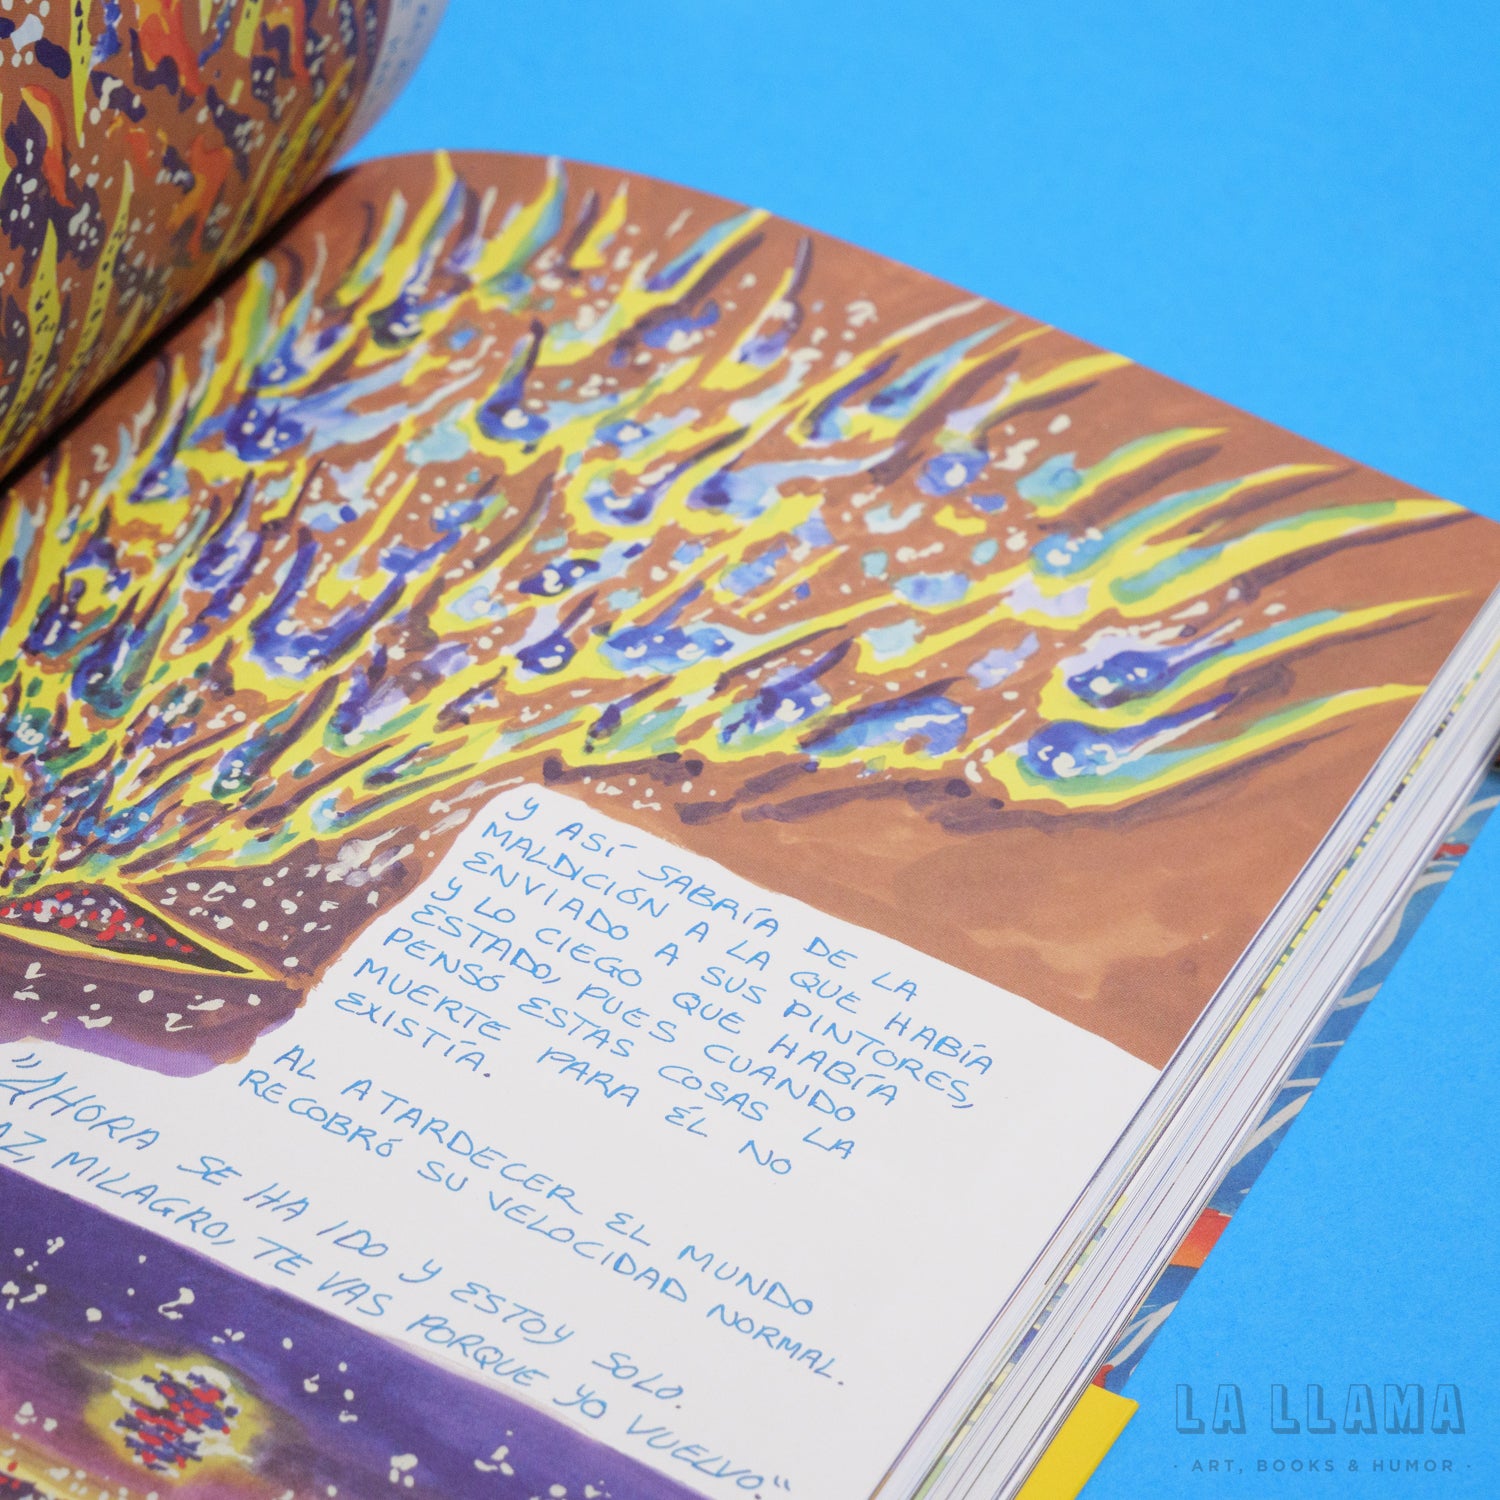 Y ASÍ SABRÍA DE LA
MALDICIÓN A LA QUE HABÍA
ENVIADO A SUS PINTORES,
Y LO CIEGO QUE HABÍA
ESTADO, PUES CUANDO
PENSÓ ESTAS COSAS LA
MUERTE PARA ÉL NO
EXISTÍA.
AL ATARDECER EL MUNDO
RECOBRÓ SU VELOCIDAD NORMAL.
"AHORA SE HA IDO Y ESTOY SOLO.
MILAGRO, TE VAS PORQUE YO VUELVO."
LA LLAMA
· ART, BOOKS & HUMOR ·